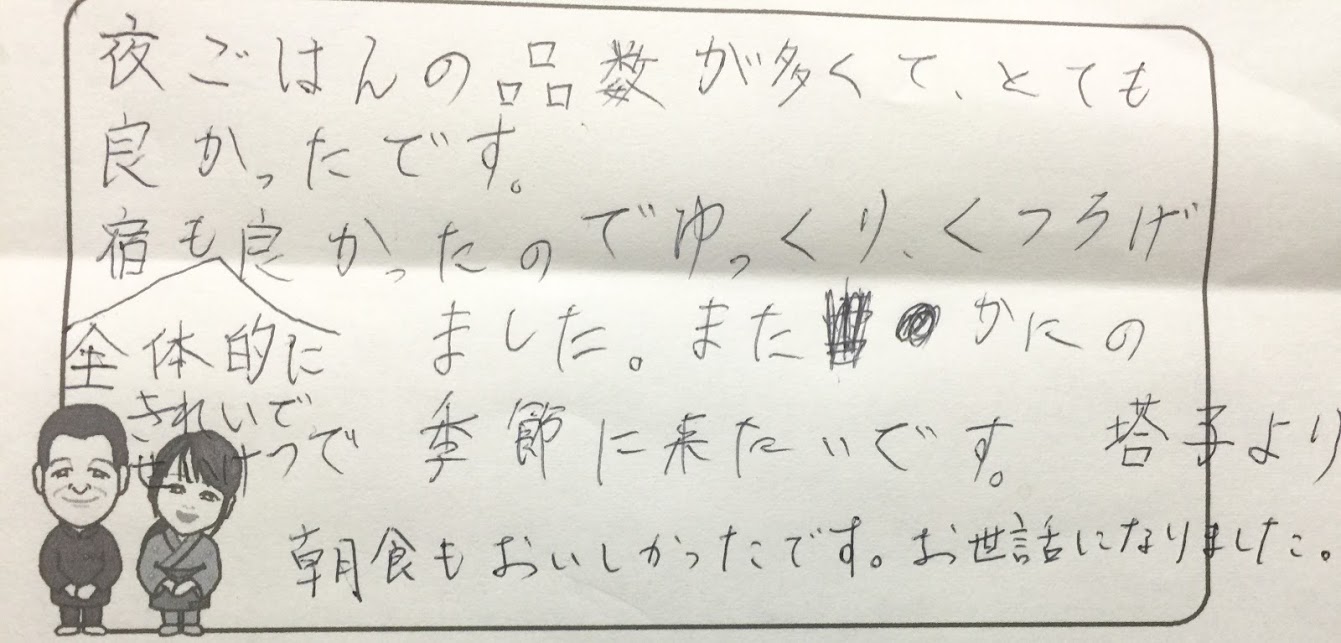 夜ごはんの品数が多くて、とても
良かったです。
宿も良かったのでゆっくり、くつろげ
全体的に
きれいで
せけつで
ました。また かにの
季節に来たいです。 塔子より
朝食もおいしかったです。お世話になりました。